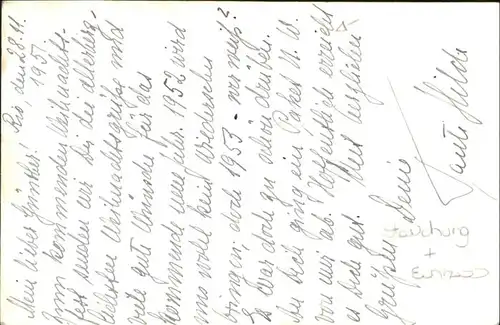 Rio, den 28.11.
1951
Mein lieber Günther!
Zum kommenden Weihnachts-
fest senden wir Dir die allerherz-
lichsten Weihnachtsgrüße und
viele gute Wünsche für das
kommende neue Jahr. 1952 wird
uns wohl kein Wiedersehen
bringen, doch 1953 - wer weiß?
Es war doch zu schön drüben.
An Dich ging ein Paket N.W.
von mir ab. Hoffentlich erreicht
es Dich gut. Mit herzlichen
Grüßen Deine
Tante Hilde
+